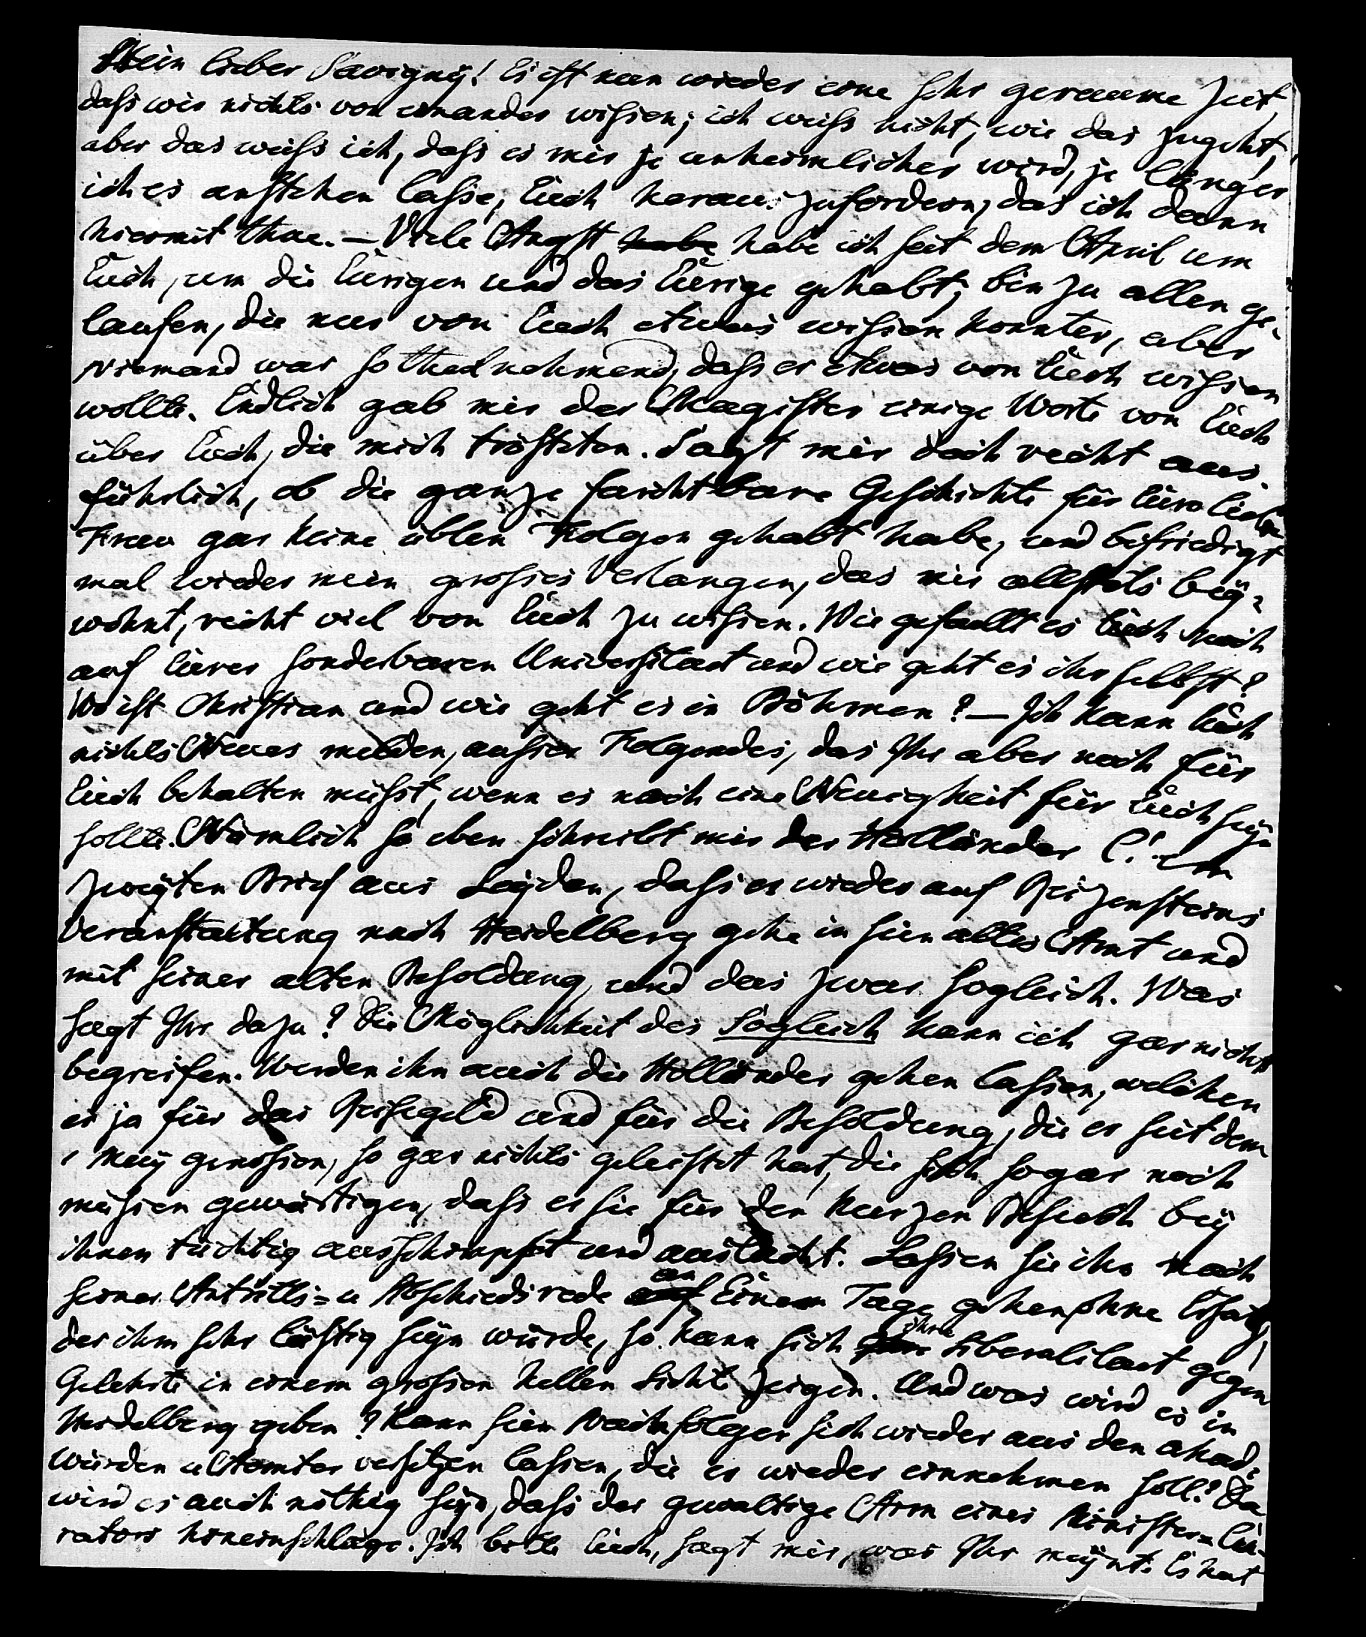 Mein lieber Savigny! Es ist nun wieder eine sehr geraume Zeit,
daß wir nichts von einander wissen; ich weiß nicht, wie das zugeht,
aber das weiß ich, daß es mir je unheimlicher wird, je länger
ich es anstehen lasse, Euch herauszufordern, das ich dann
hiermit thue. — Viele Angst habe habe ich seit dem April um
Euch, um die Eurigen und das Eurige gehabt; bin zu allen ge-
laufen, die nur von Euch etwas wissen konnten, aber
niemand war so theilnehmend, daß er etwas von Euch wissen
wollte. Endlich gab mir der Magister einige Worte von Euch
über Euch, die mich trösteten. Sagt mir doch recht aus-
führlich, ob die ganze furchtbare Geschichte für Eure liebe
Frau gar keine üblen Folgen gehabt habe, und befriedigt
mal wieder mein großes Verlangen, das mir allstets bey-
wohnt, recht viel von Euch zu wissen. Wie gefällt es Euch noch
auf Eurer sonderbaren Universitaet und wie geht es ihr selbst?
Wo ist Christian und wie geht es in Böhmen? — Ich kann Euch
nichts Neues melden, ausser Folgendes, das Ihr aber noch für
Euch behalten müßt, wenn es noch eine Neuigkeit für Euch seyn
sollte. Nämlich so eben schreibt mir der Holländer
zweyten Brief aus Leyden, daß er wieder auf Reizensteins
Veranstaltung nach Heidelberg gehe in sein altes Amt und
mit seiner alten Besoldung, und das zwar sogleich. Was
sagt Ihr dazu? Die Möglichkeit des Sogleich kann ich gar nicht
begreifen. Werden ihn auch die Holländer gehen lassen, welchen
er ja für das Reisegeld und für die Besoldung, die er seit dem
1 May genossen, so gar nichts geleistet hat, die sich sogar noch
müssen gewärtigen, daß er sie für den kurzen Besuch bey
ihnen tüchtig ausschimpfet und auslacht. Lassen sie ihn nach
seiner Antritts- u Abschiedsrede an Einem Tage gehen ohne Ersatz,
der ihm sehr lästig seyn würde, so kann sich ihre Liberalitaet gegen
Gelehrte in einem großen hellen Licht zeigen. Und was wird es in
Heidelberg geben? Kann sein Nachfolger sich wieder aus den akad.
würden u Aemter versetzen lassen, die er wieder einnehmen soll? Da
wird es auch nöthig seyn, daß der gewaltige Arm eines Minister-Cu-
rators hineinschlage. Ich bitte Euch, sagt mir, was Ihr meynt. Es hat